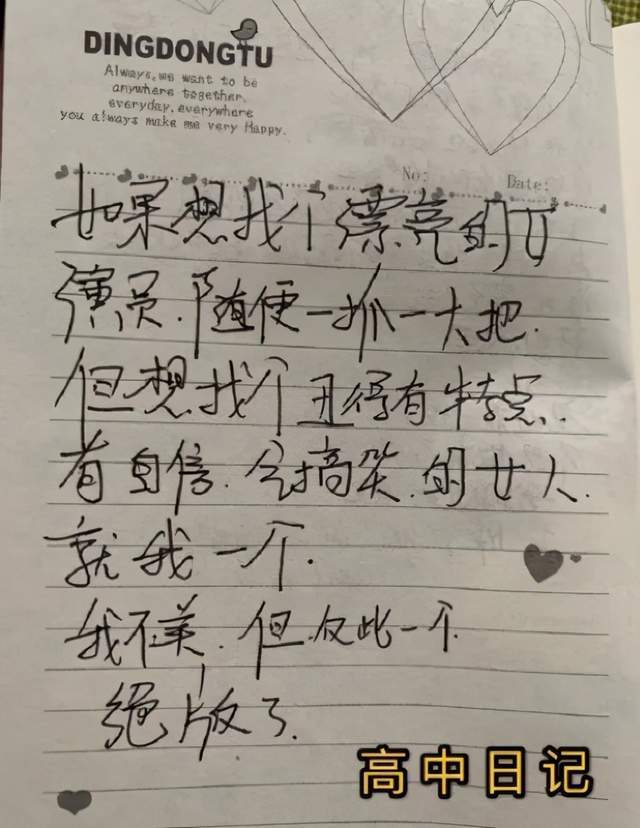 DINGDONGTU
Always,we want to be
anywhere together,
everyday,everywhere
you always make me very Happy.
No: Date:
如果想找个漂亮的女
演员.随便一抓一大把.
但想找个丑得有特点..
有自信.会搞笑.的女人.
就我一个.
我不美.但.仅此一个.
绝版了.
高中日记